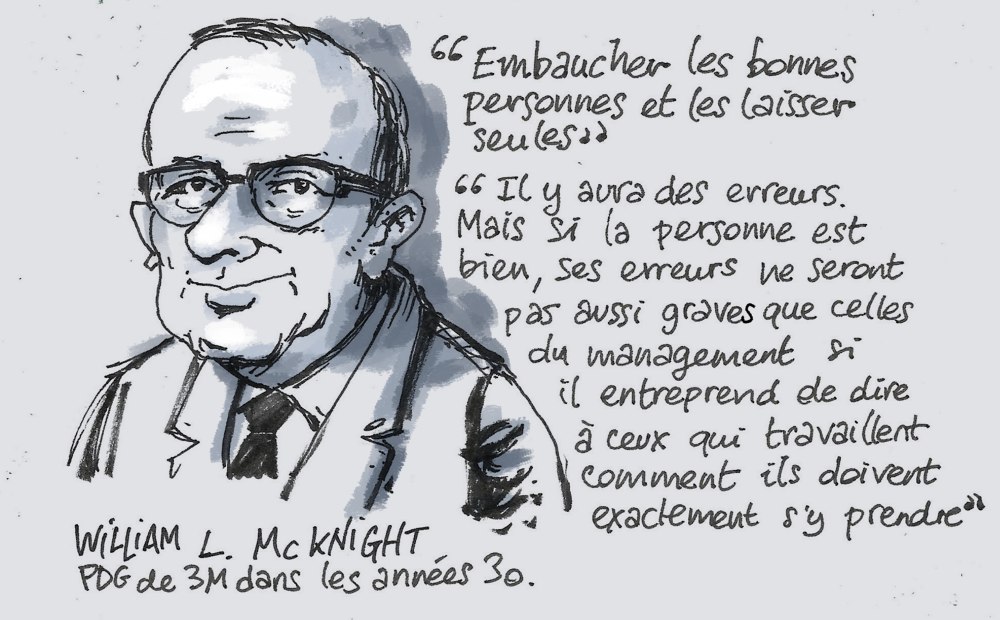 “Embaucher les bonnes
personnes et les laisser
seules”
“Il y aura des erreurs.
Mais si la personne est
bien, ses erreurs ne seront
pas aussi graves que celles
du management si
il entreprend de dire
à ceux qui travaillent
comment ils doivent
exactement s'y prendre”
WILLIAM L. McKNIGHT
PDG de 3M dans les années 30.